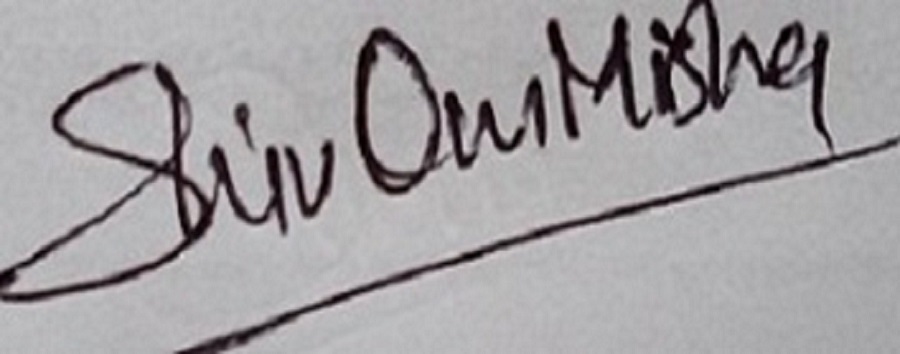 Shiv Om Mishra